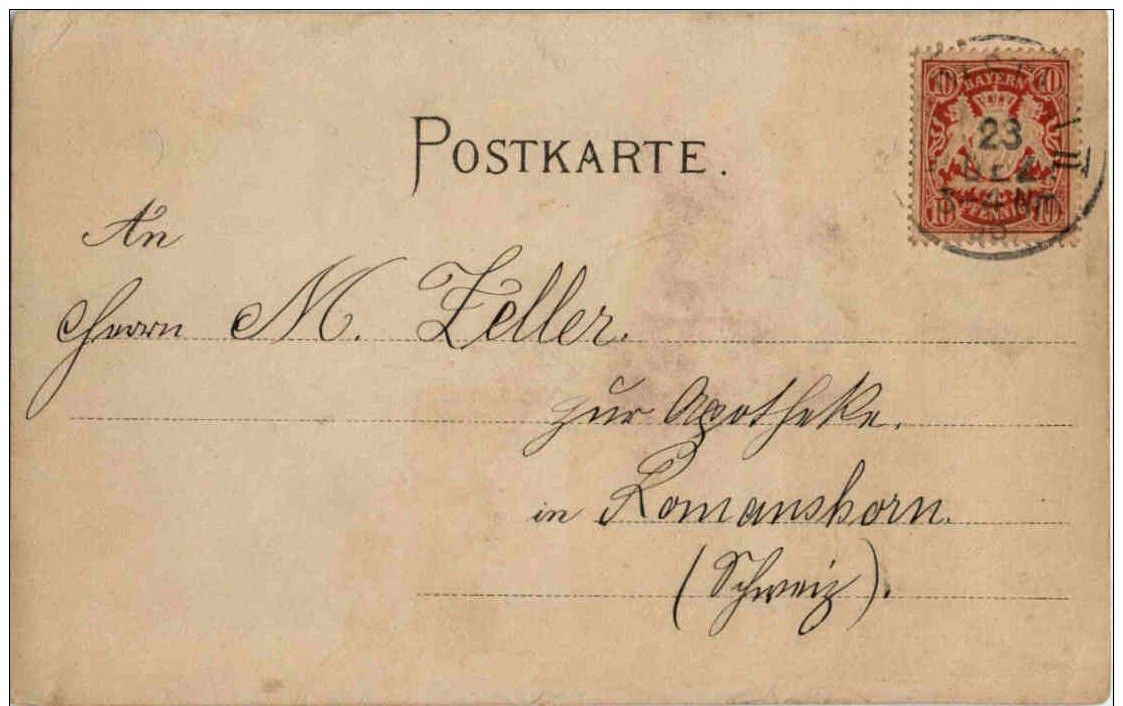 POSTKARTE.
BAYERN
10 10
23
DEZ
3-4 Nm
10 PFENNIG 10
An
Herrn M. Zeller.
zur Apotheke.
in Romanshorn.
(Schweiz).